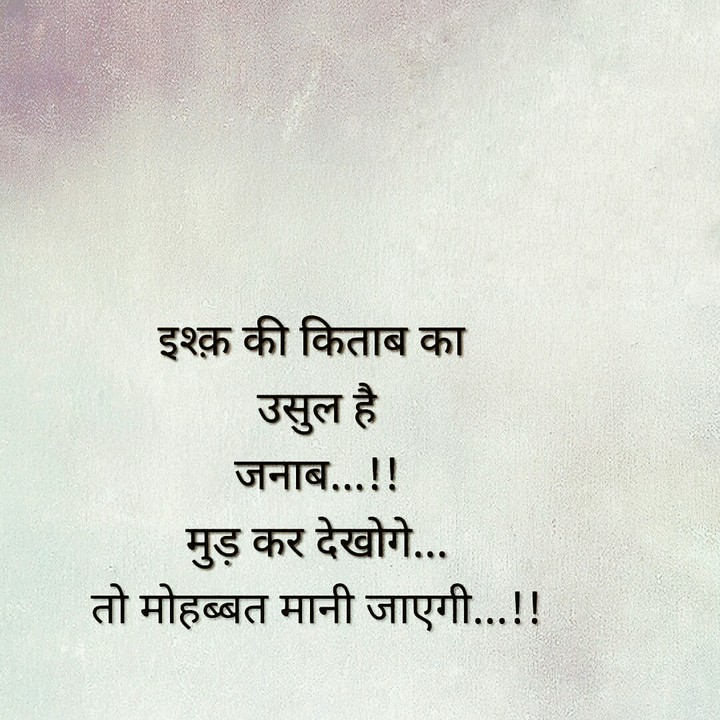 इश्क़ की किताब का
उसुल है
जनाब...!!
मुड़ कर देखोगे...
तो मोहब्बत मानी जाएगी...!!